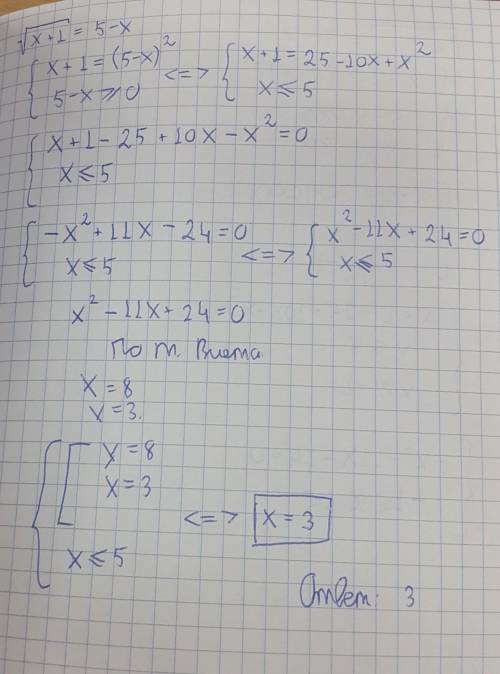 √x+1 = 5-x
{ x+1 = (5-x)² <=> { x+1 = 25-10x+x²
5-x ⩾ 0 x ⩽ 5
{ x+1-25+10x-x² = 0
x ⩽ 5
{ -x²+11x-24=0 <=> { x²-11x+24=0
x ⩽ 5 x ⩽ 5
x²-11x+24=0
По т. Виета
x = 8
x = 3.
{ [ x = 8
x = 3
<=> x = 3
x ⩽ 5
Ответ: 3